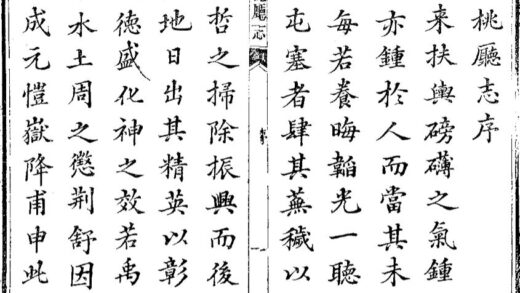 桃廳志序
来扶輿磅礴之氣鍾
亦鍾於人而當其未
每若養晦韜光一聽
屯塞者肆其蕪穢以
廳志
哲之掃除振興而後
地日出其精英以彰
德盛化神之效若禹
水土周之懲荆舒因
成元愷嶽降甫申此